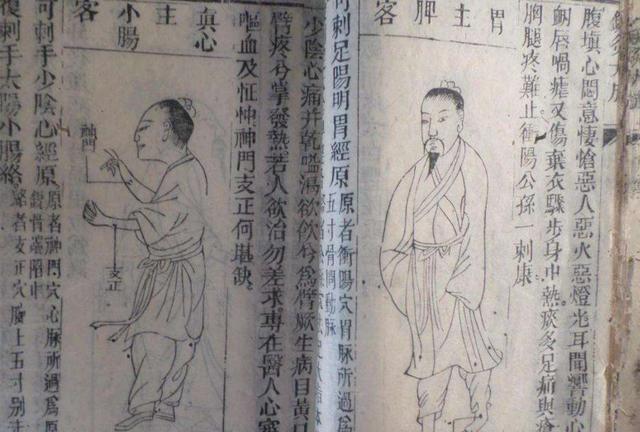 胃主脾客
腹填心悶意悽愴惡人惡火惡燈光耳聞響動心
衄唇喎瘧又傷棄衣驟步身中熱痰多足痛與瘡
胸腿疼難止衝陽公孫一刺康
可刺足陽明胃經原
原者衝陽穴胃脉所過為
五寸骨間動脉
真心主小腸客
少陰心痛并乾嗌渴欲飲兮為臂厥生病目黃口
臂疼兮掌發熱若人欲治勿差求專在醫人心審
嘔血及怔忡神門支正何堪缺
神門
支正
可刺手少陰心經原
原者神門穴心脉所過為原
銳骨端陷中
復刺手太陽小腸絡
絡者支正穴腕上五寸別走